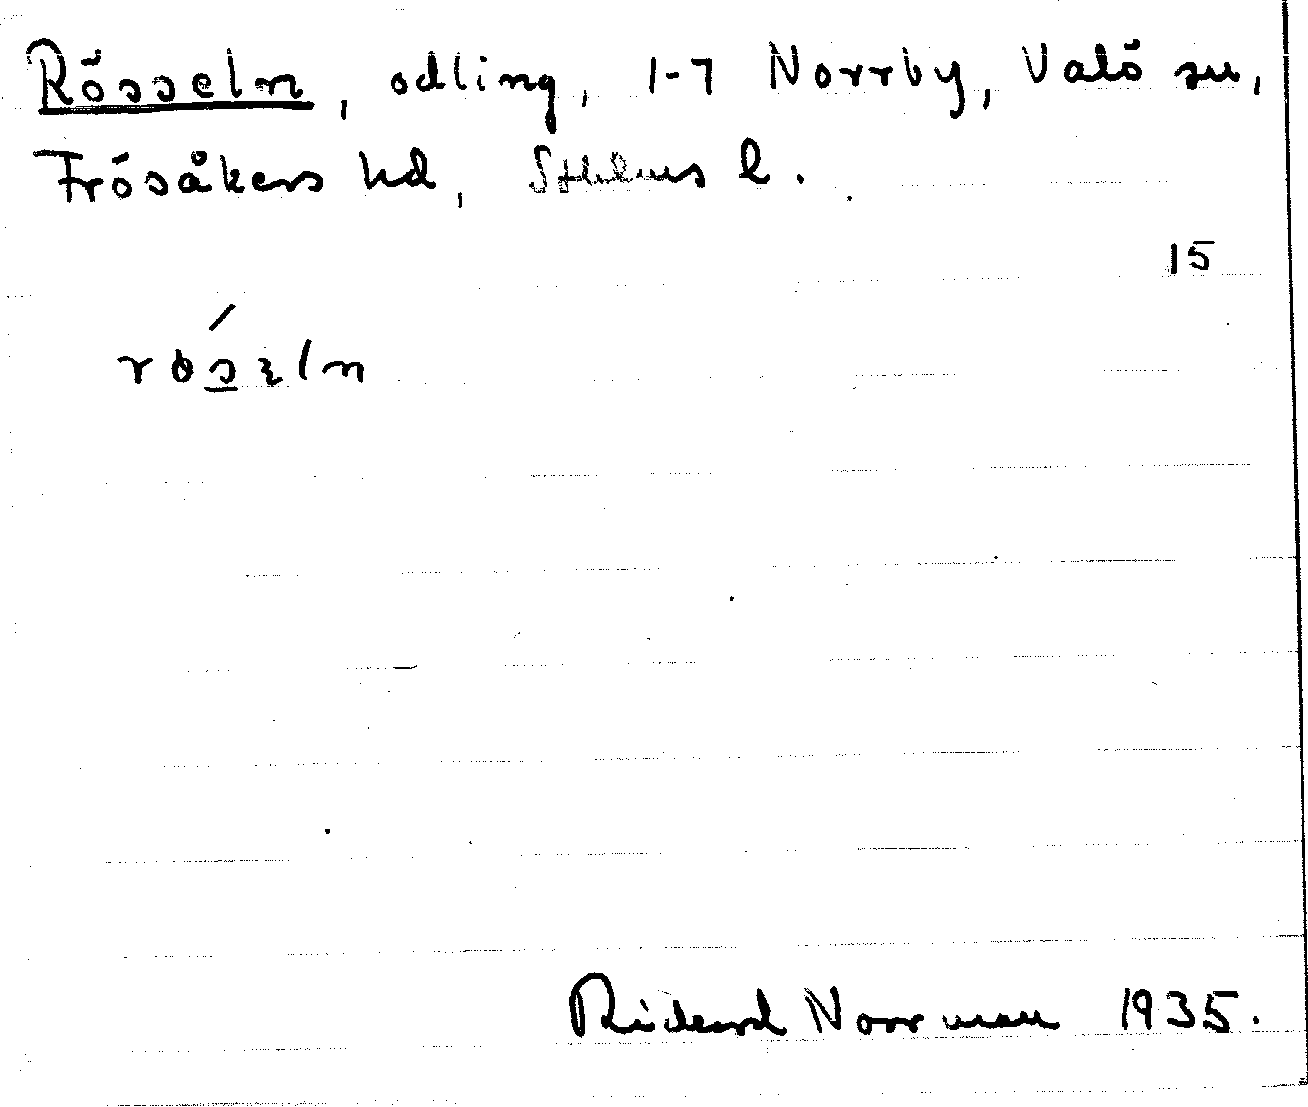 Rösseln, odling, 1-7 Norrby, Valö sn,
Frösåkers hd, Sthlms l.
15
röseln
Rickard Norrman 1935.